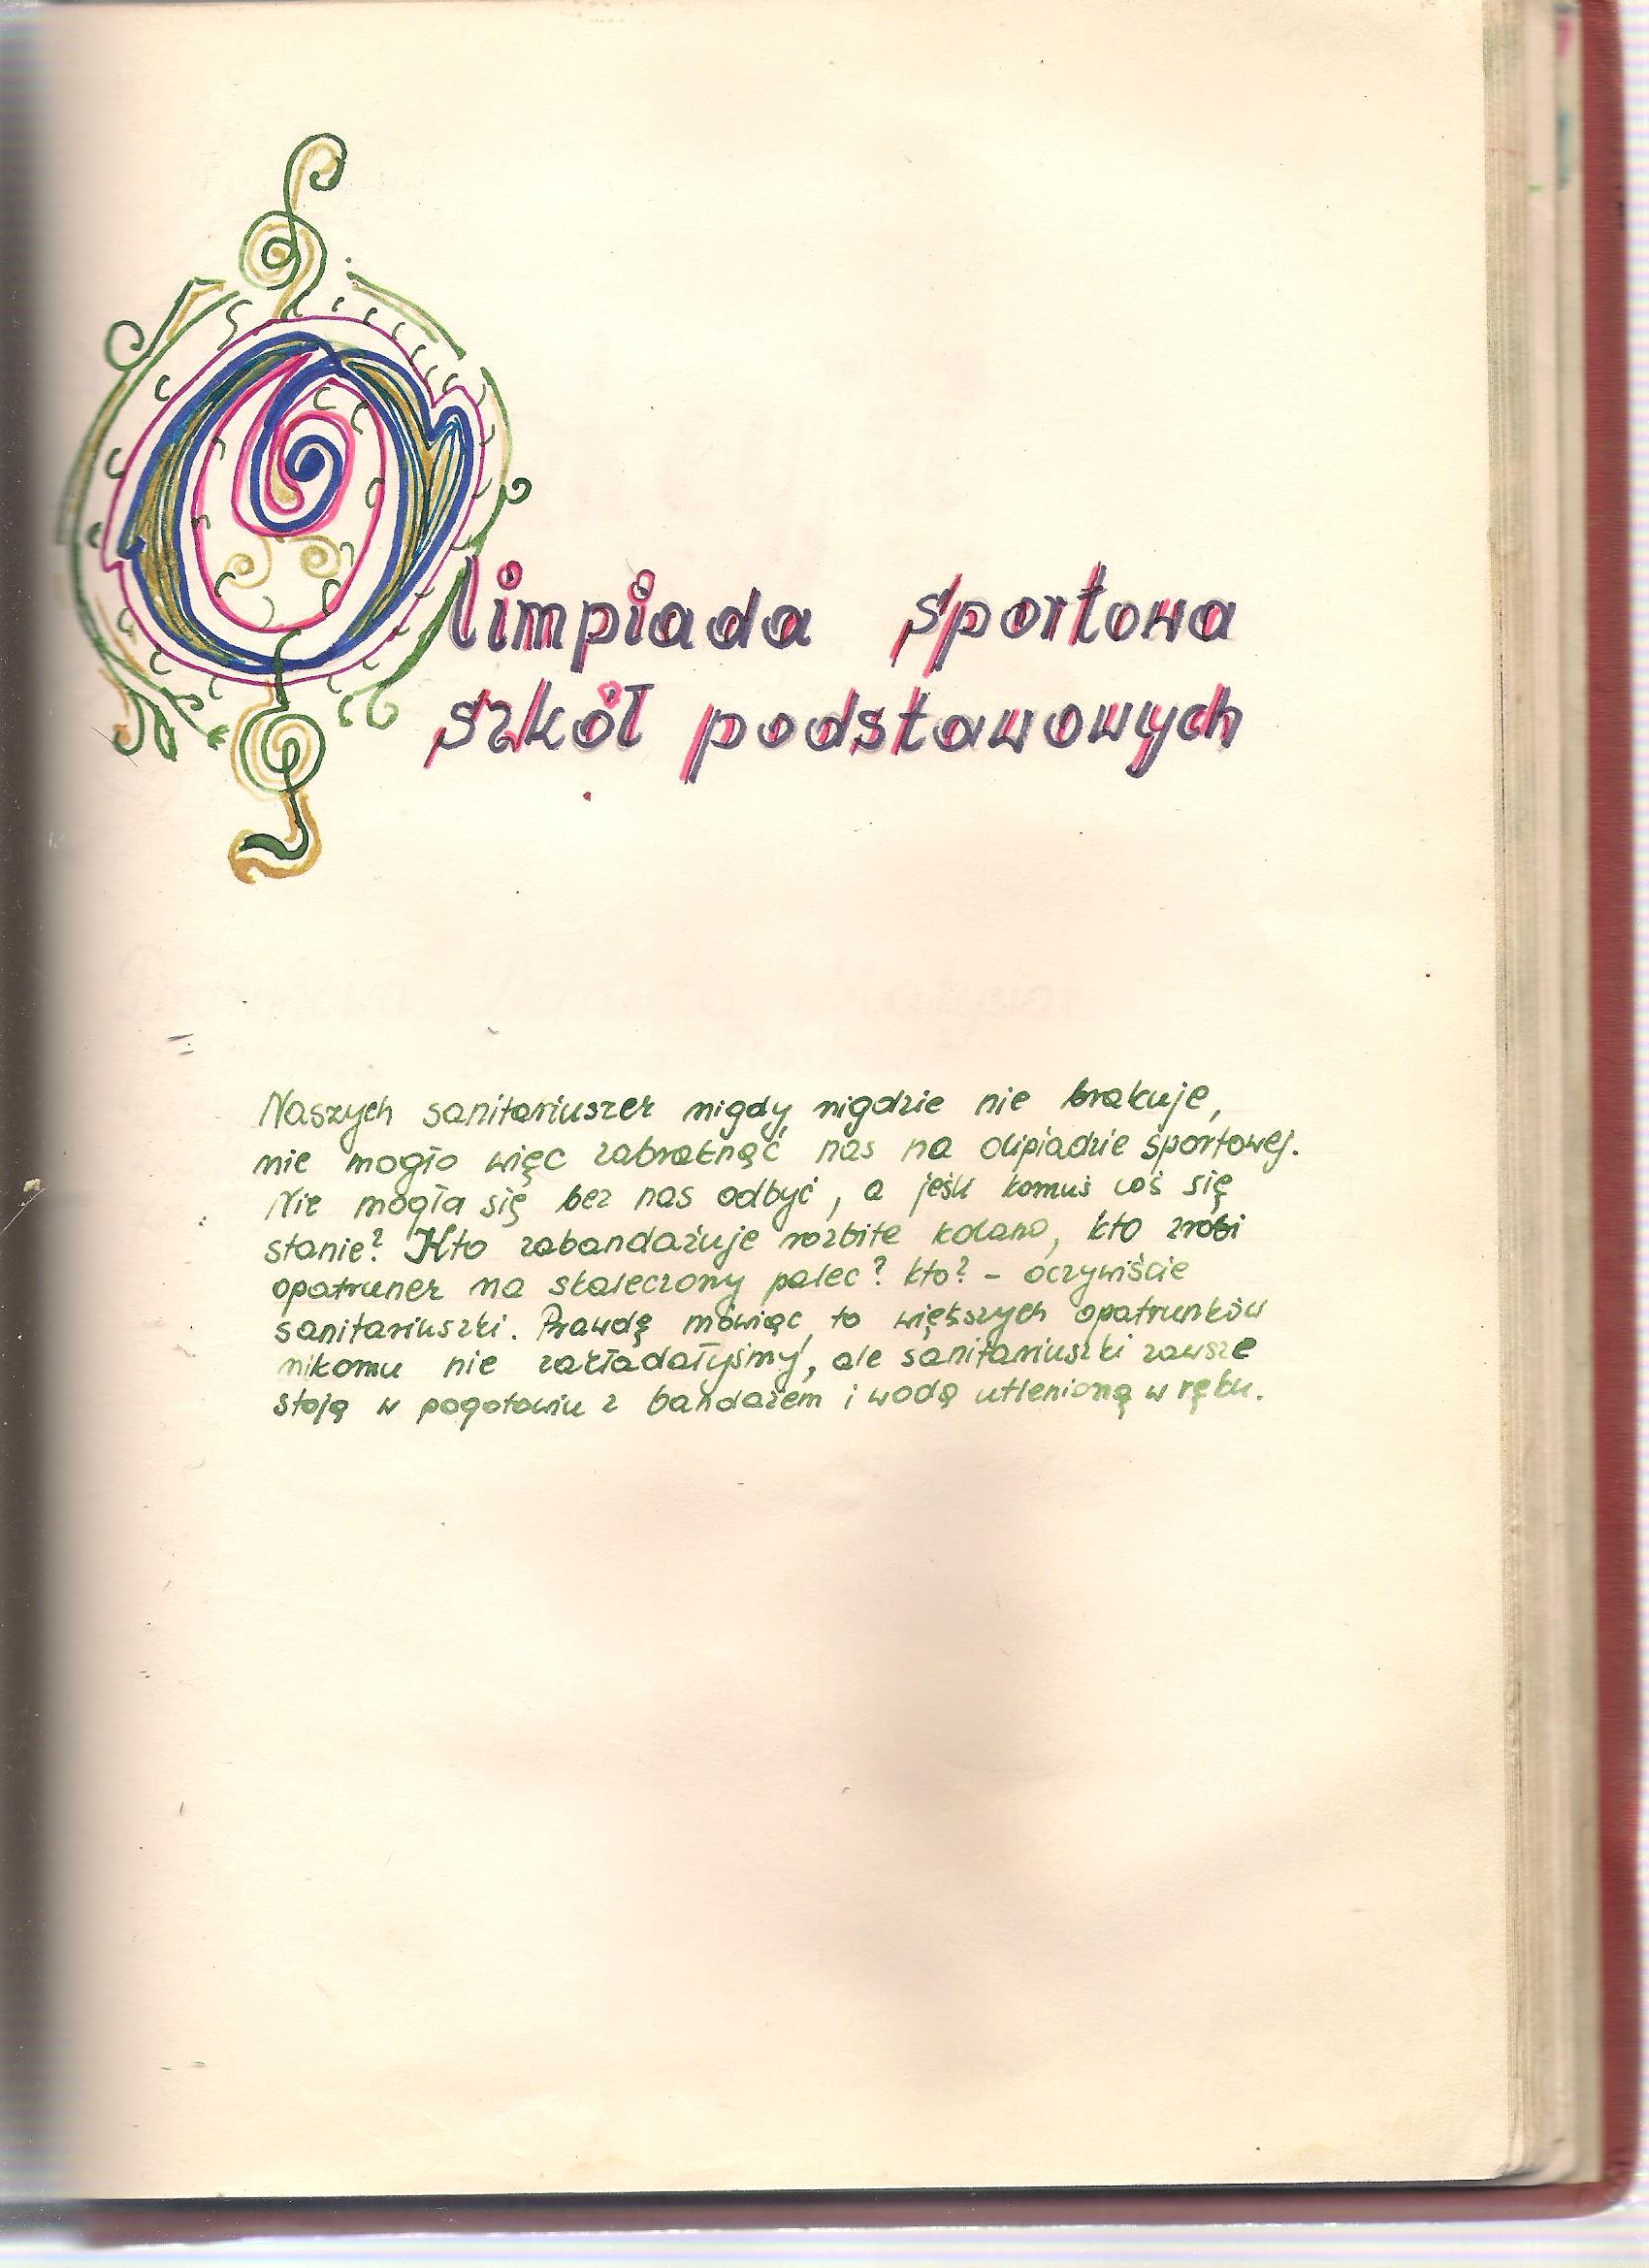 Olimpiada sportowa
szkół podstawowych
Naszych sanitariuszek nigdy, nigdzie nie brakuje,
nie mogło więc zabraknąć nas na olipiadzie sportowej.
Nie mogła się bez nas odbyć, a jeśli komuś coś się
stanie? Kto zabandażuje rozbite kolano, kto zrobi
opatrunek na skaleczony palec? kto? - oczywiście
sanitariuszki. Prawdę mówiąc, to większych opatrunków
nikomu nie zakładałyśmy, ale sanitariuszki zawsze
stoją w pogotowiu z bandażem i wodą utlenioną w ręku.